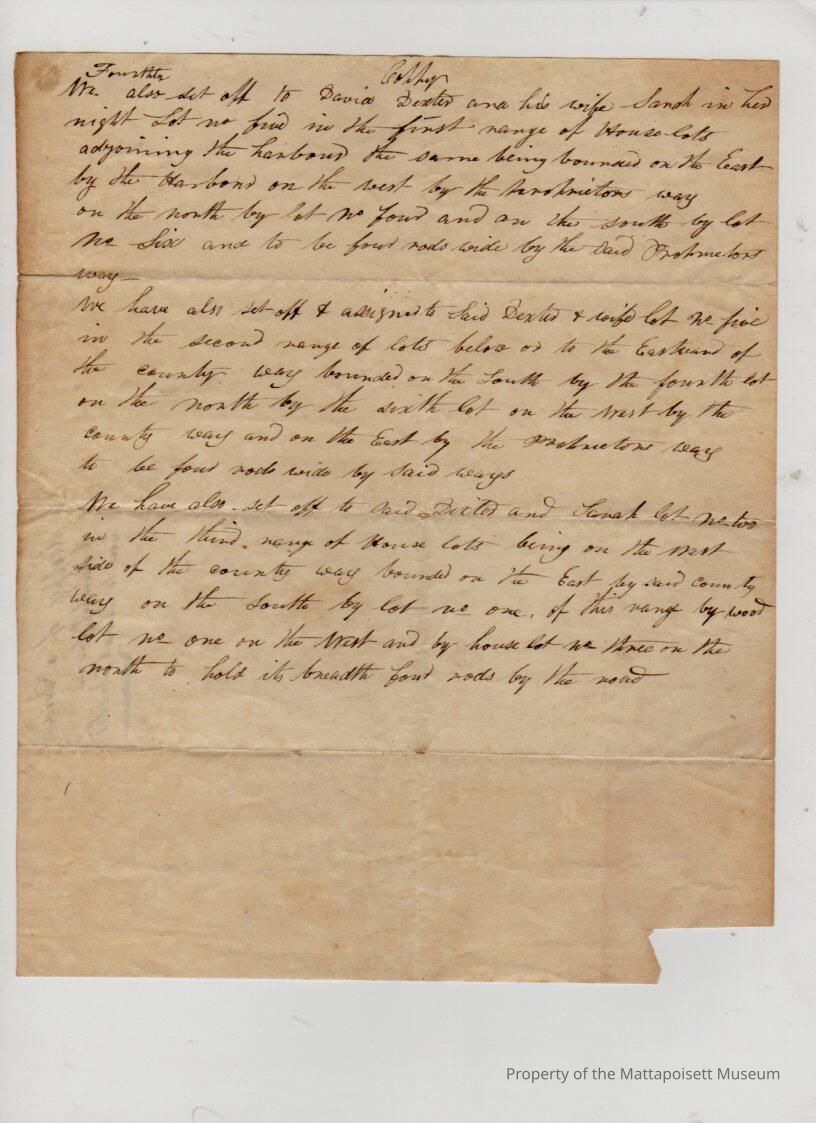 Fourthly Coppy
We also set off to David Dexter and his wife Sarah in her
right Lot no five in the first range of House lots
adjoining the harbour the same being bounded on the East
by the Harbour on the west by the Proprietors way
on the north by lot No four and on the south by lot
No Six and to be four rods wide by the said Proprietors
way
We have also set off & assigned to Said Dexter & wife lot No five
in the second range of lots below or to the Eastward of
the county way bounded on the South by the fourth lot
on the north by the sixth lot on the west by the
county way and on the East by the Proprietors way
to be four rods wide by said ways
We have also set off to said Dexter and Sarah lot No two
in the third range of House lots being on the west
side of the county way bounded on the East by said county
way on the South by lot no one, of this range by wood
lot no one on the West and by house lot no three on the
north to hold its breadth four rods by the road
Property of the Mattapoisett Museum